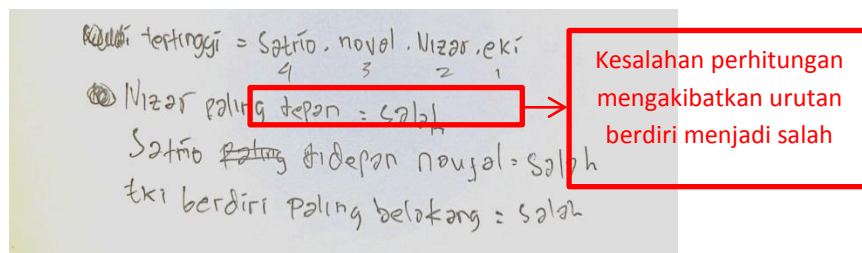 tertinggi = Satrio . noval . Nizar . eki
4 3 2 1
Nizar paling depan = salah
Satrio didepan nouzal = salah
eki berdiri paling belakang = salah
Kesalahan perhitungan
mengakibatkan urutan
berdiri menjadi salah